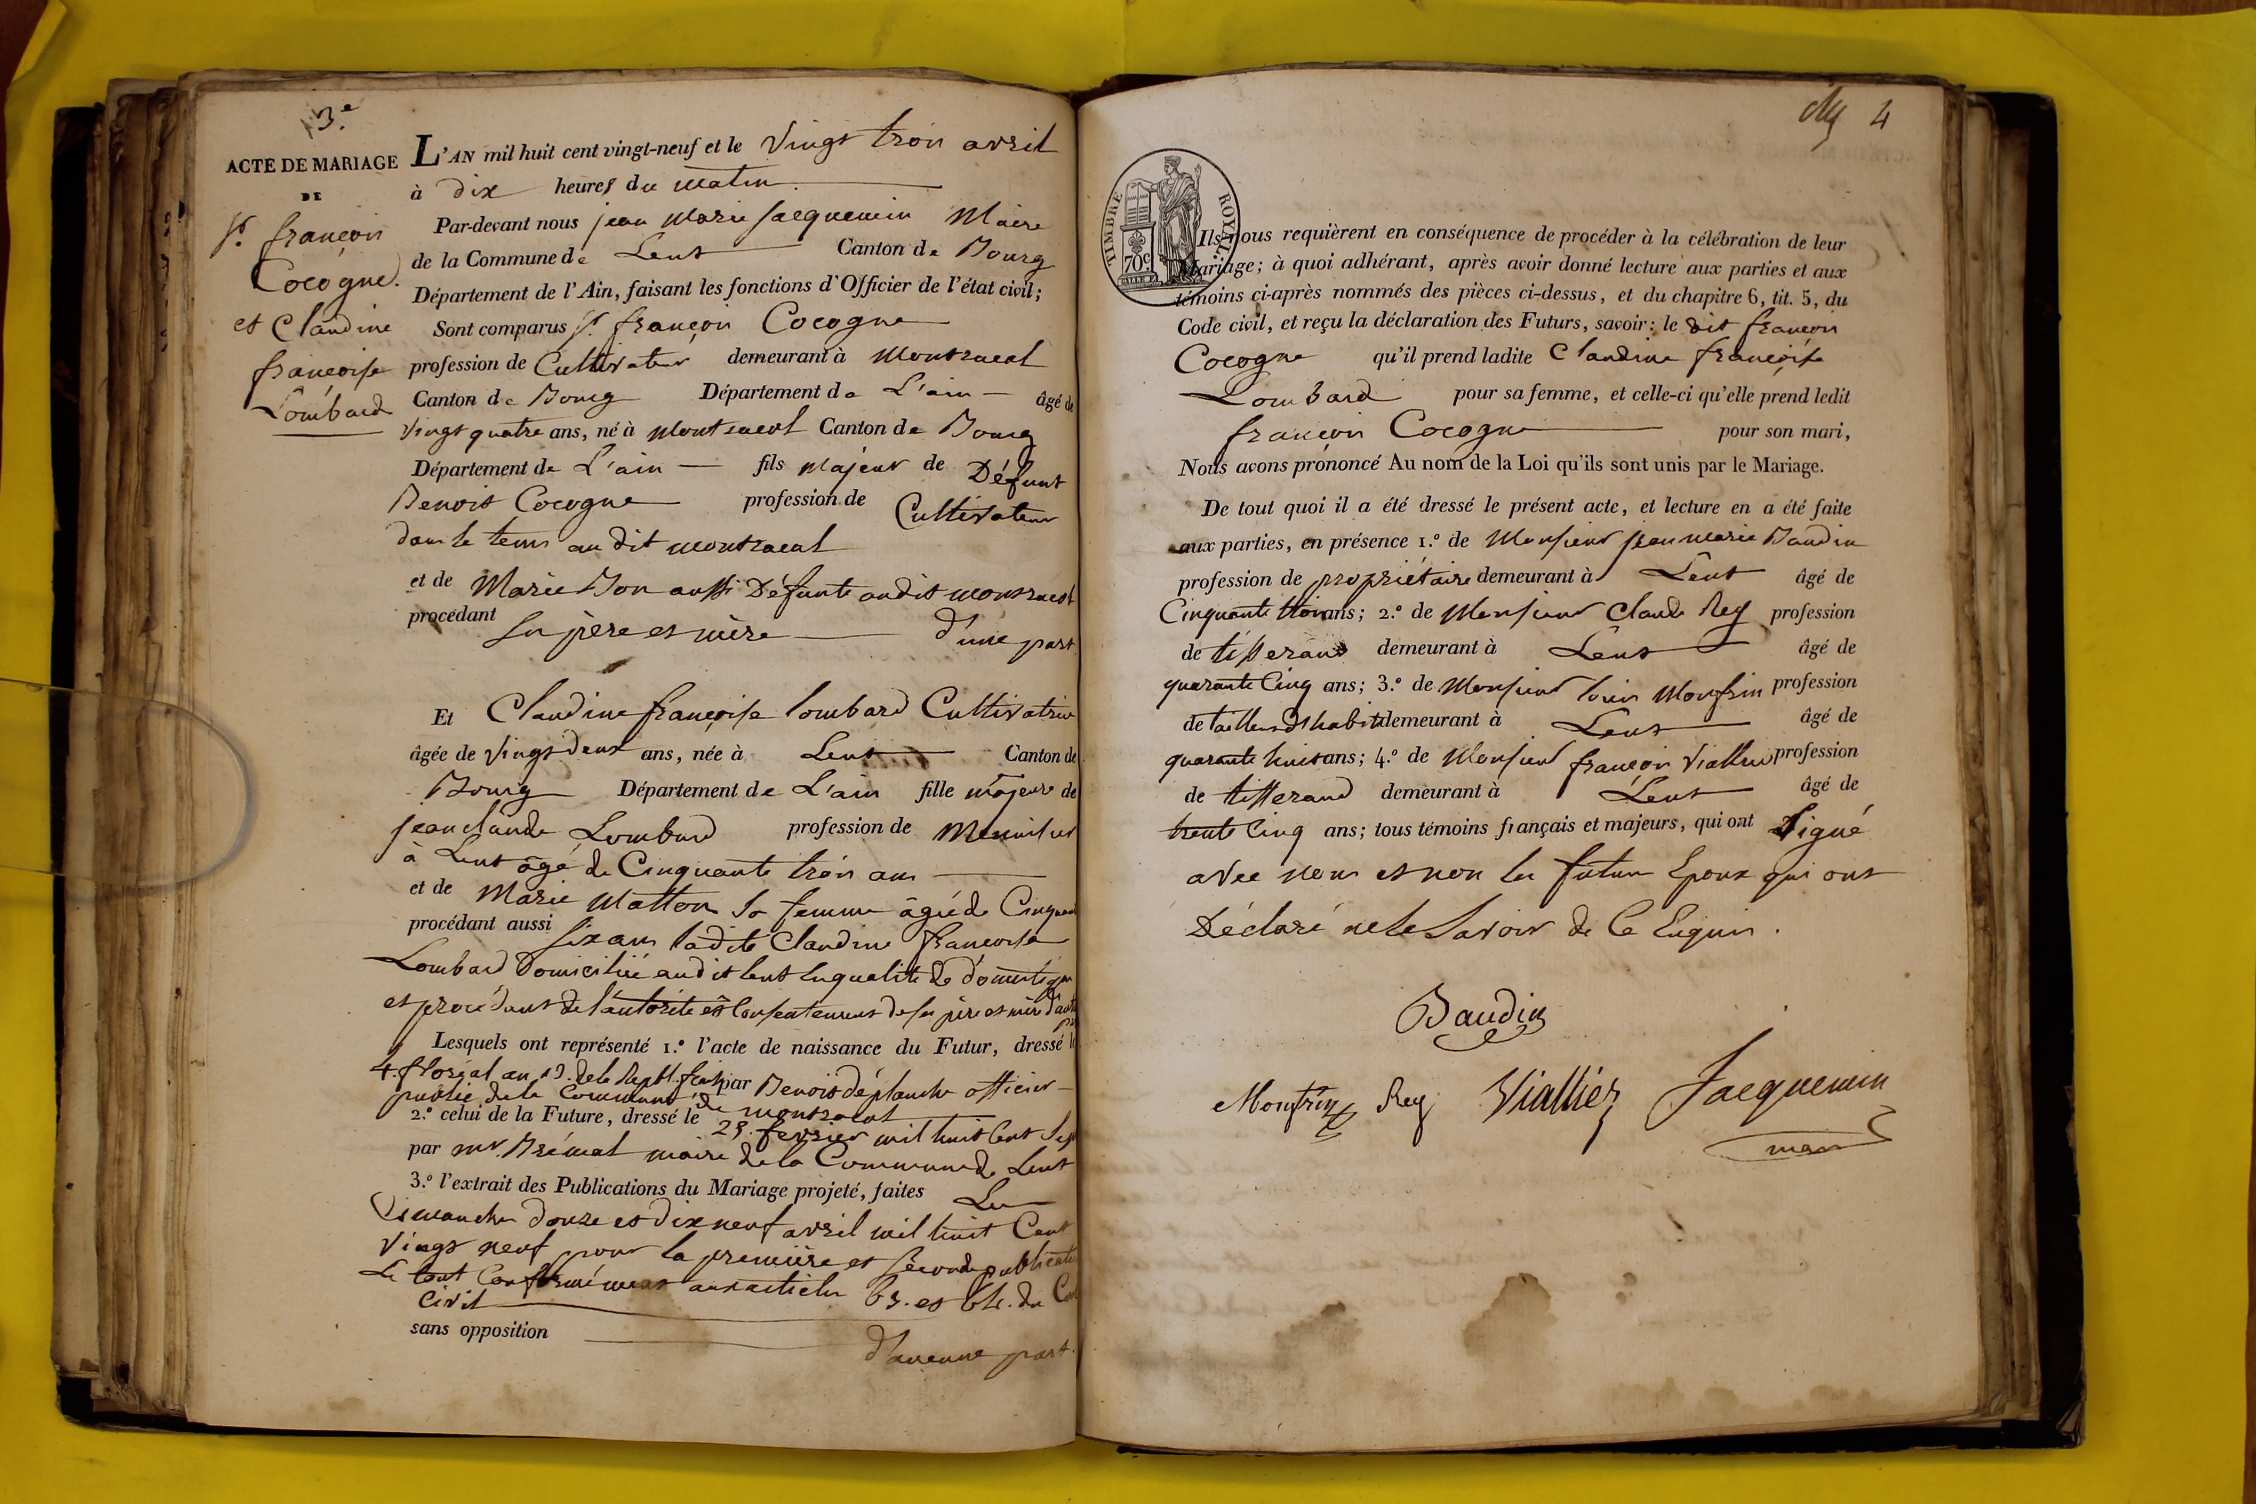 3.e
ACTE DE MARIAGE
DE
Sr. françois
Cocogne.
et Claudine
françoise
Lombard
L'AN mil huit cent vingt-neuf et le vingt trois avril
à dix heures du matin
Par-devant nous jean marie jacquemin Maire
de la Commune de Lent Canton de Bourg
Département de l'Ain, faisant les fonctions d'Officier de l'état civil;
Sont comparus Sr. françois Cocogne
profession de Cultivateur demeurant à montracol
Canton de Bourg Département de L'ain âgé de
vingt quatre ans, né à montracol Canton de Bourg
Département de L'ain fils majeur de Défunt
Benoit Cocogne profession de Cultivateur
dans le tems au dit montracol
et de Marie Bon aussi Défunte audit montracol
procédant ses père et mère d'une part
Et Claudine françoise lombard Cultivatrice
âgée de vingt deux ans, née à Lent Canton de
Bourg Département de L'ain fille majeure de
jean claude Lombard profession de Menuisier
à Lent âgé de Cinquante trois ans
et de Marie Matton sa femme âgée de Cinquante
procédant aussi six ans ladite Claudine françoise
Lombard Domiciliée audit lent en qualité de domestique
et procédant de l'autorité et Consentement de ses père et mère d'autre part
Lesquels ont représenté 1.º l'acte de naissance du Futur, dressé le
4. floréal an 13. de la Rep. par Benoit déplanche officier
public de la Commune de montracol
2.º celui de la Future, dressé le 25. fevrier mil huit Cent sept
par mr. Brémal maire de la Commune de Lent
3.º l'extrait des Publications du Mariage projeté, faites Les
Dimanches douze et dix neuf avril mil huit Cent
vingt neuf pour la première et seconde publication
Le tout Conformément aux articles 63. et 64. du Code
Civil
sans opposition d'aucune part.
4
TIMBRE ROYAL
70c.
Ils nous requièrent en conséquence de procéder à la célébration de leur
Mariage; à quoi adhérant, après avoir donné lecture aux parties et aux
témoins ci-après nommés des pièces ci-dessus, et du chapitre 6, tit. 5, du
Code civil, et reçu la déclaration des Futurs, savoir: le dit françois
Cocogne qu'il prend ladite Claudine françoise
Lombard pour sa femme, et celle-ci qu'elle prend ledit
françois Cocogne pour son mari,
Nous avons prononcé Au nom de la Loi qu'ils sont unis par le Mariage.
De tout quoi il a été dressé le présent acte, et lecture en a été faite
aux parties, en présence 1.º de Monsieur jean marie Baudin
profession de propriétaire demeurant à Lent âgé de
Cinquante trois ans; 2.º de Monsieur Claude Rey profession
de tisserand demeurant à Lent âgé de
quarante Cinq ans; 3.º de Monsieur louis Monfrin profession
de tailleur d'habits demeurant à Lent âgé de
quarante huit ans; 4.º de Monsieur françois Viallier profession
de tisserand demeurant à Lent âgé de
trente Cinq ans; tous témoins français et majeurs, qui ont Signé
avec nous et non les futurs Epoux qui ont
Déclaré ne le Savoir de Ce Enquis.
Baudin
Monfrin Rey Viallier Jacquemin
maire